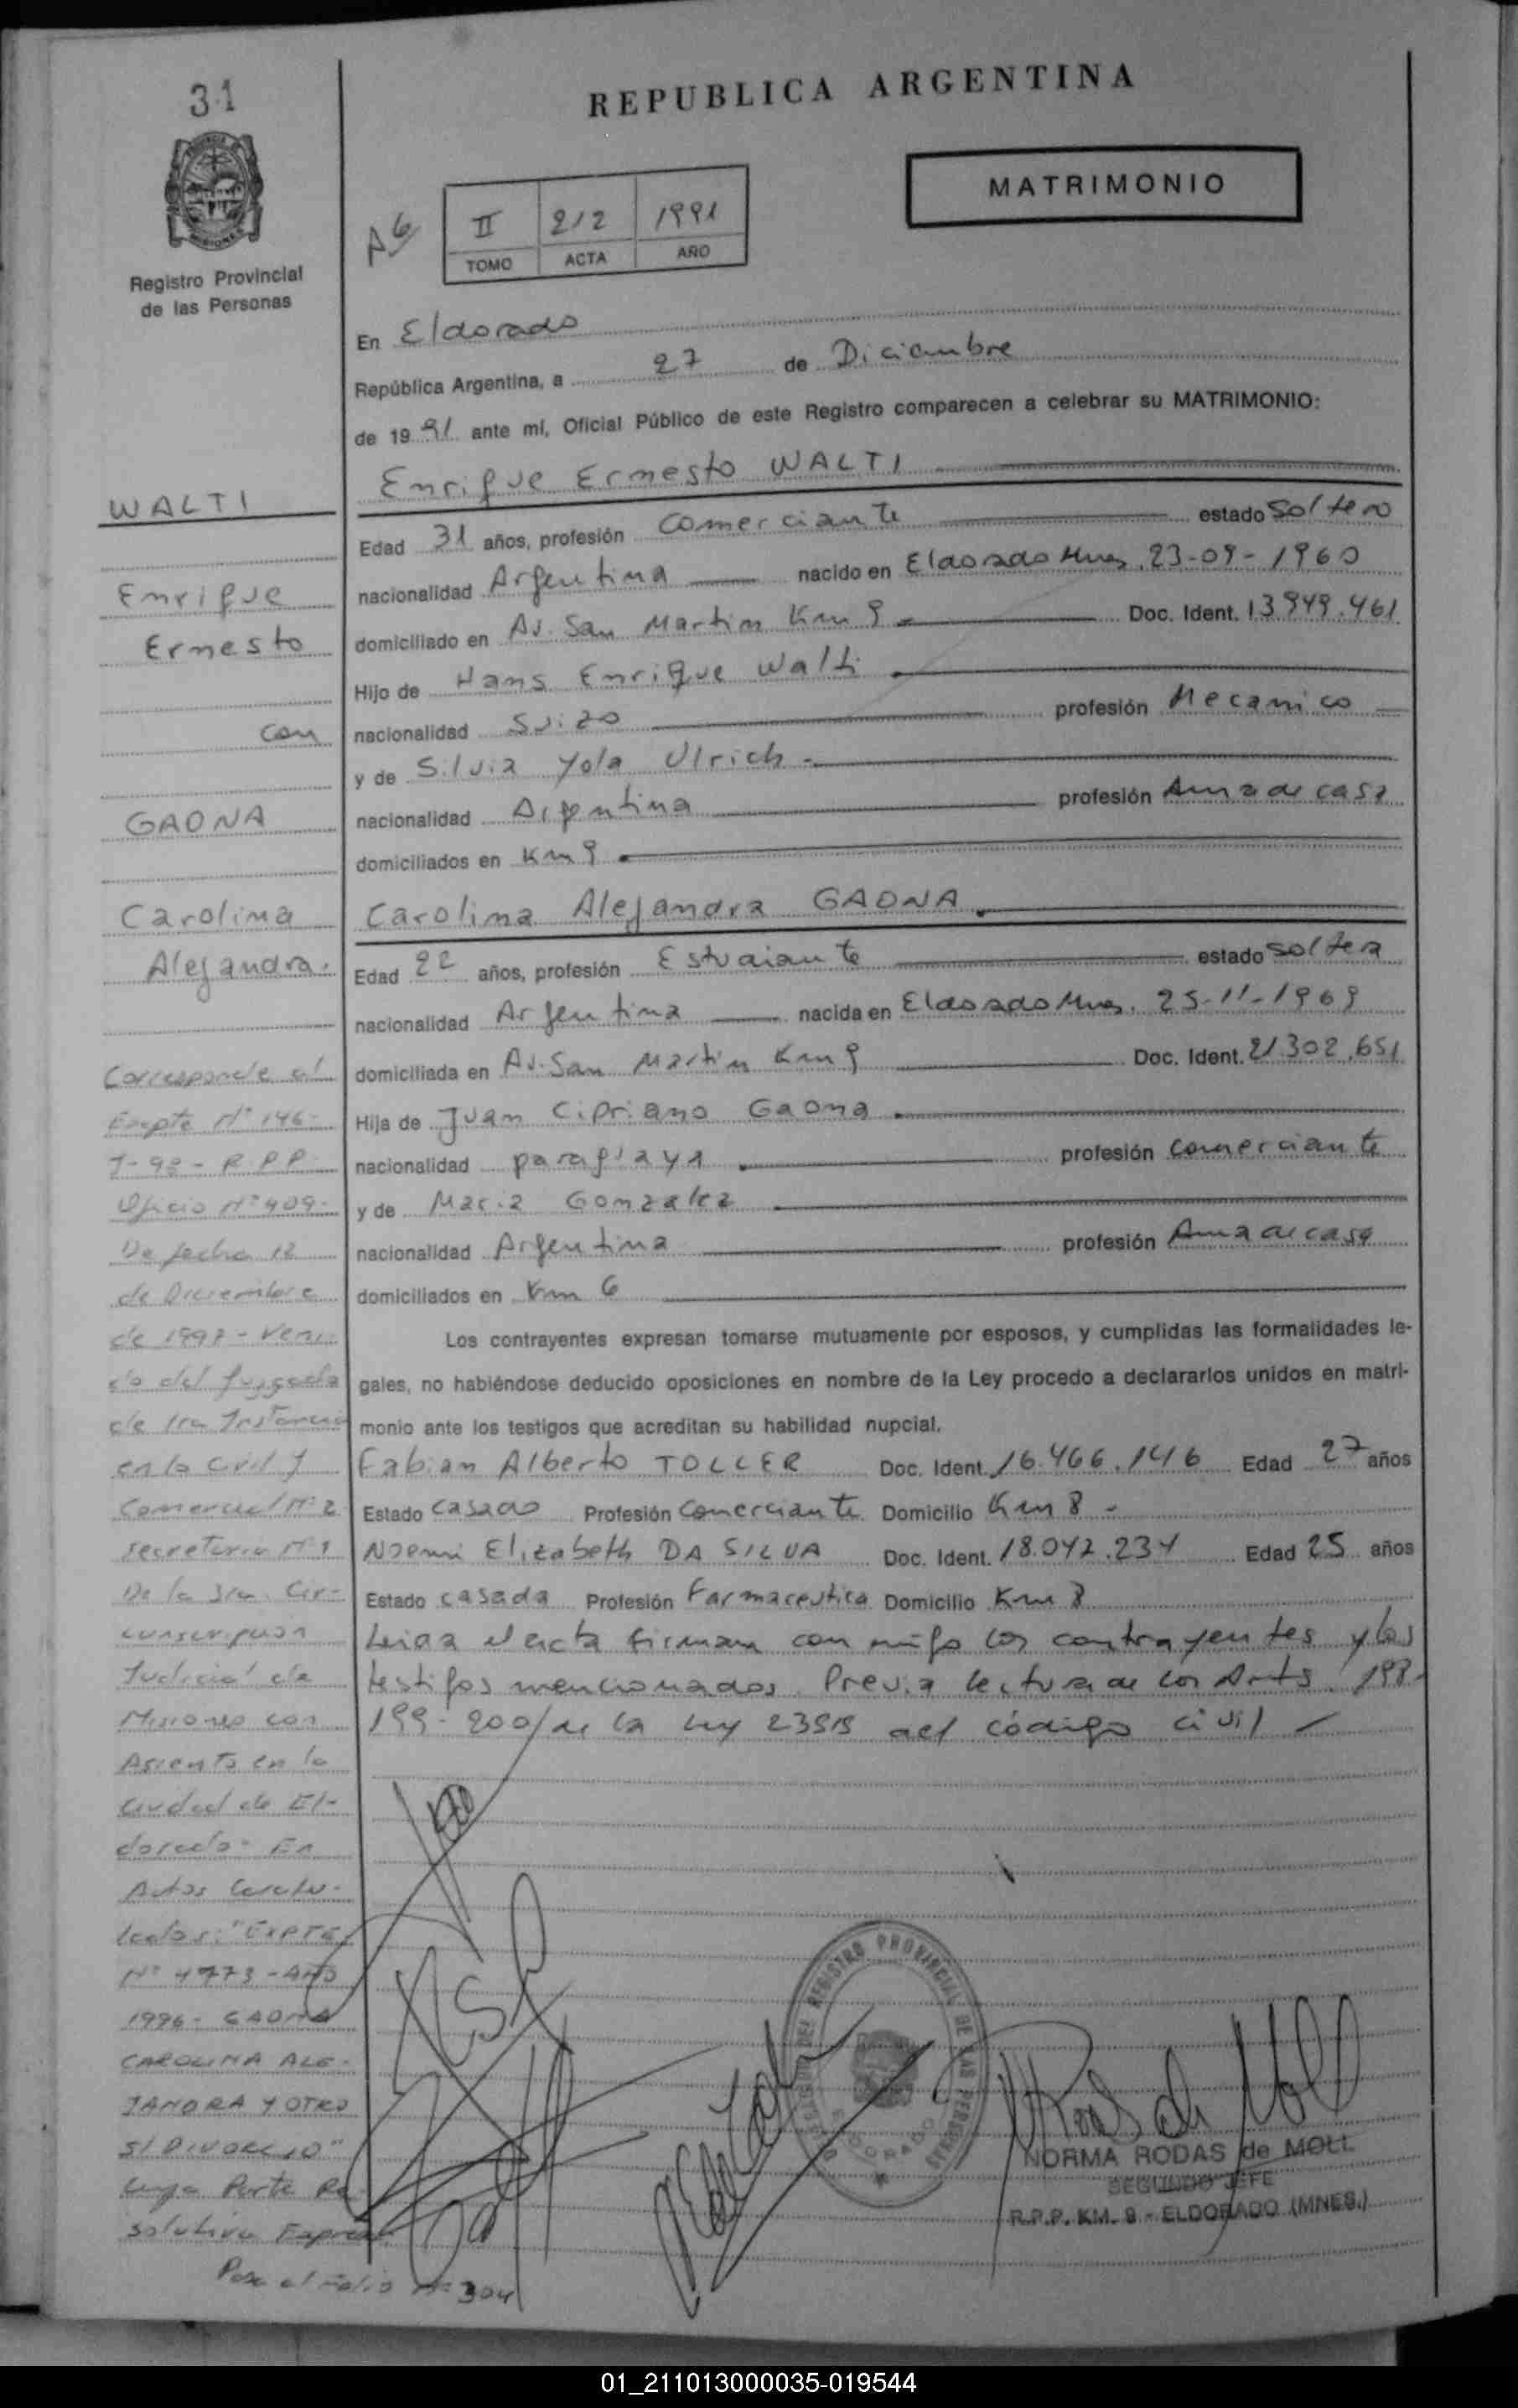 31
REPUBLICA ARGENTINA
MATRIMONIO
II 212 1991
TOMO ACTA AÑO
Registro Provincial
de las Personas
En Eldorado
República Argentina, a 27 de Diciembre
de 1991 ante mí, Oficial Público de este Registro comparecen a celebrar su MATRIMONIO:
Enrique Ernesto WALTI
Edad 31 años, profesión Comerciante estado Soltero
nacionalidad Argentina nacido en Eldorado Mnes. 23-09-1960
domiciliado en Av. San Martin Km 9 Doc. Ident. 13.949.461
Hijo de Hans Enrique Walti
nacionalidad Suizo profesión Mecanico
y de Silvia Yola Ulrich
nacionalidad Argentina profesión Ama de casa
domiciliados en Km 9
Carolina Alejandra GAONA
Edad 22 años, profesión Estudiante estado soltera
nacionalidad Argentina nacida en Eldorado Mnes. 25-11-1969
domiciliada en Av. San Martin Km 9 Doc. Ident. 21.302.651
Hija de Juan Cipriano Gaona
nacionalidad paraguaya profesión comerciante
y de Maria Gonzalez
nacionalidad Argentina profesión Ama de casa
domiciliados en Km 6
Los contrayentes expresan tomarse mutuamente por esposos, y cumplidas las formalidades le-
gales, no habiéndose deducido oposiciones en nombre de la Ley procedo a declararlos unidos en matri-
monio ante los testigos que acreditan su habilidad nupcial.
Fabian Alberto TOLLER Doc. Ident. 16.466.146 Edad 27 años
Estado casado Profesión Comerciante Domicilio Km 8 -
Noemi Elizabeth DA SILVA Doc. Ident. 18.042.234 Edad 25 años
Estado casada Profesión Farmaceutica Domicilio Km 8
Leida el acta firman con migo los contrayentes y los
testigos mencionados. Previa lectura de los Arts. 198-
199-200/de la Ley 23515 del código civil
NORMA RODAS de MOLL
SEGUNDO JEFE
R.P.P. KM. 9 - ELDORADO (MNES.)
WALTI
Enrique
Ernesto
con
GAONA
Carolina
Alejandra.
Corresponde al
Expte Nº 146-
-RPP
Oficio Nº 409-
De fecha 12
de Diciembre
de 1997 - Veni-
do del Juzgado
de 1ra Instancia
en lo Civil y
Comercial Nº 2
secretaria Nº 1
De la 3ra. Cir-
cunscripcion
Judicial de
Misiones con
Asiento en la
Ciudad de El-
dorado- En
Autos Caratu-
lados: "EXPTE
Nº 4773 - AÑO
1996- GAONA
CAROLINA ALE-
JANDRA Y OTRO
S/ DIVORCIO"
cuya Parte Re-
solutiva Expresa
Pasa al Folio Nº 304
01_211013000035-019544